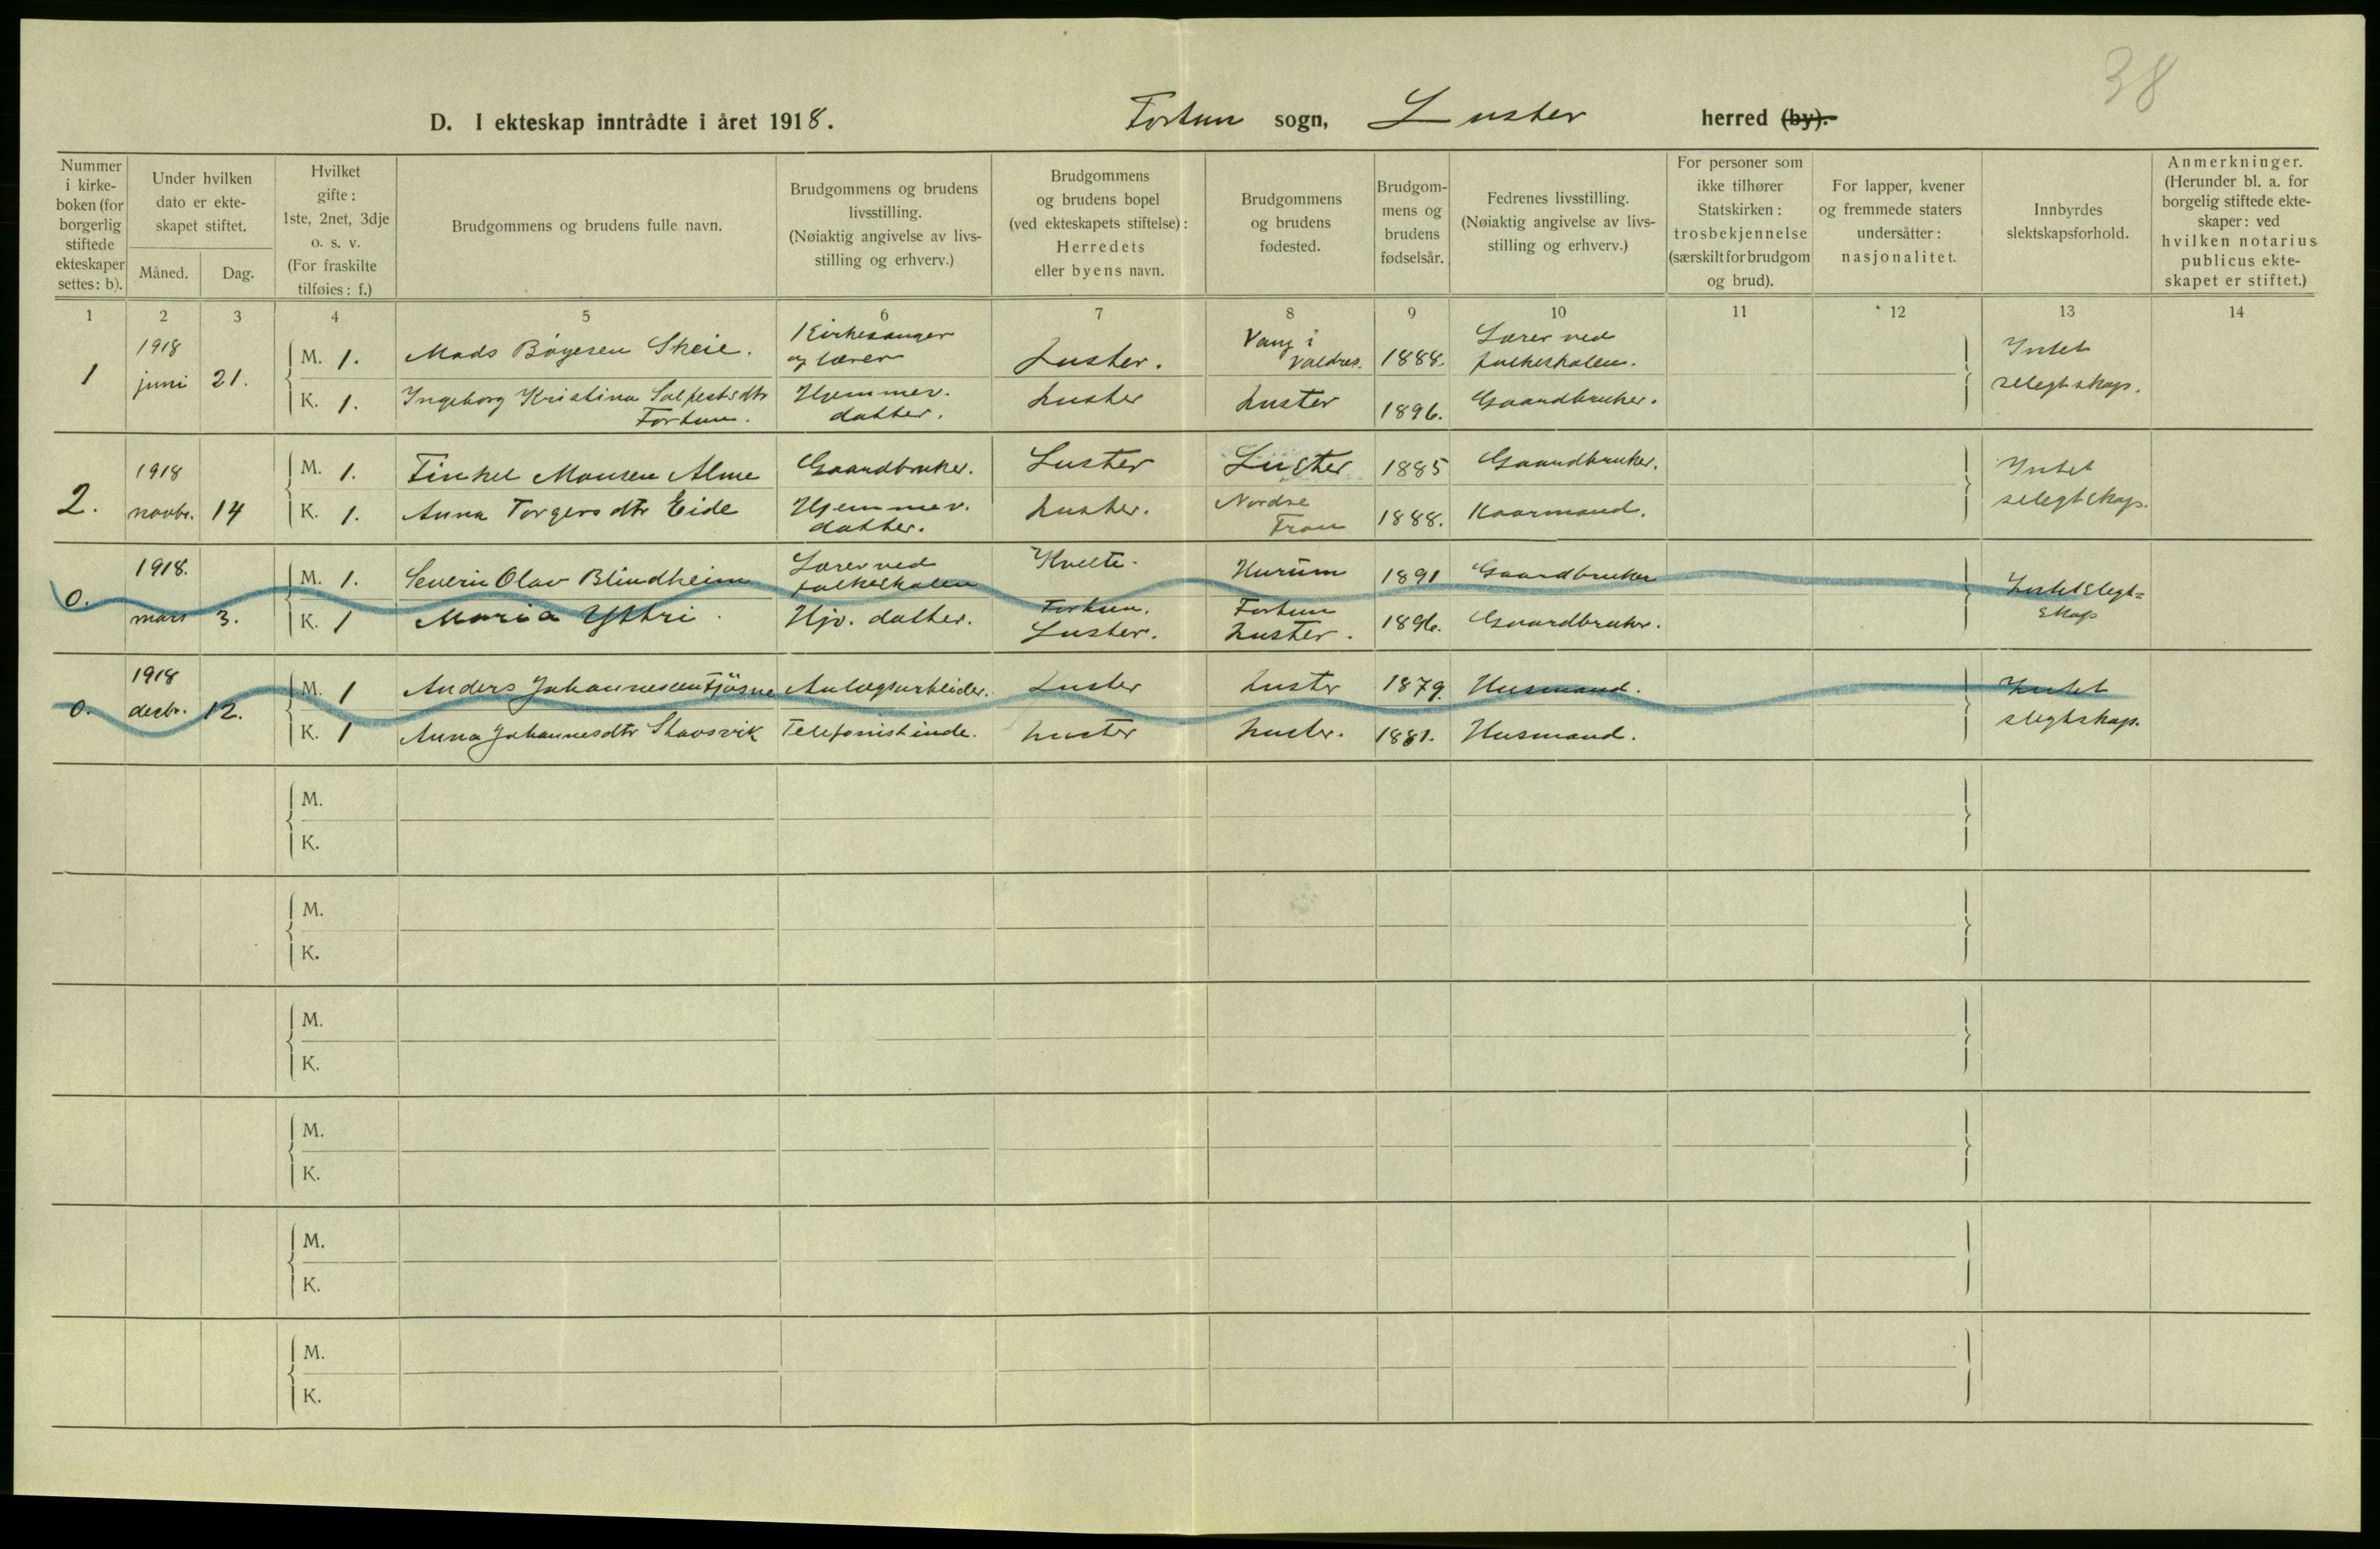 38
D. I ekteskap inntrådte i året 1918. Fortun sogn, Luster herred (by).
Nummer i kirke-boken (for borgerlig stiftede ekteskaper settes: b).
Under hvilken dato er ekte-skapet stiftet.
Måned. Dag.
Hvilket gifte: 1ste, 2net, 3dje o. s. v. (For fraskilte tilføies: f.)
Brudgommens og brudens fulle navn.
Brudgommens og brudens livsstilling. (Nøiaktig angivelse av livs-stilling og erhverv.)
Brudgommens og brudens bopel (ved ekteskapets stiftelse): Herredets eller byens navn.
Brudgommens og brudens fødested.
Brudgom-mens og brudens fødselsår.
Fedrenes livsstilling. (Nøiaktig angivelse av livs-stilling og erhverv.)
For personer som ikke tilhører Statskirken: trosbekjennelse (særskilt for brudgom og brud).
For lapper, kvener og fremmede staters undersåtter: nasjonalitet.
Innbyrdes slektskapsforhold.
Anmerkninger. (Herunder bl. a. for borgelig stiftede ekte-skaper: ved hvilken notarius publicus ekte-skapet er stiftet.)
1 2 3 4 5 6 7 8 9 10 11 12 13 14
1 1918 juni 21. M. 1. Mads Bøyesen Skeie. Kirkesanger og lærer Luster. Vang i Valdres. 1888. Lærer ved folkeskolen. Intet selegtskap.
K. 1. Ingeborg Kristina Solfestsdtr Fortun. Hjemmev. datter. Luster Luster 1896. Gaardbruker.
2. 1918 novbr. 14 M. 1. Finkel Monsen Alme Gaardbruker. Luster Luster 1885 Gaardbruker. Intet selegtskap.
K. 1. Anna Torgersdtr Eide Hjemmev. datter. Luster. Nordre Fron 1888. Kaarmand.
0. 1918. mars 3. M. 1. Severin Olav Blindheim Lærer ved folkeskolen Hurum 1891 Gaardbruker Intet slegt=skap
K. 1 Maria Yttri. Hjv. datter. Fortun. Luster. Fortun Luster. 1896. Gaardbruker.
0. 1918 desbr. 12. M. 1 Anders Johannessen Fjøsne Anlægsarbeider. Luster Luster 1879. Husmand. Intet slegtskap.
K. 1 Anna Johannesdtr Skaasvik Telefonistinde. Luster Luster. 1881. Husmand.
M.
K.
M.
K.
M.
K.
M.
K.
M.
K.
M.
K.